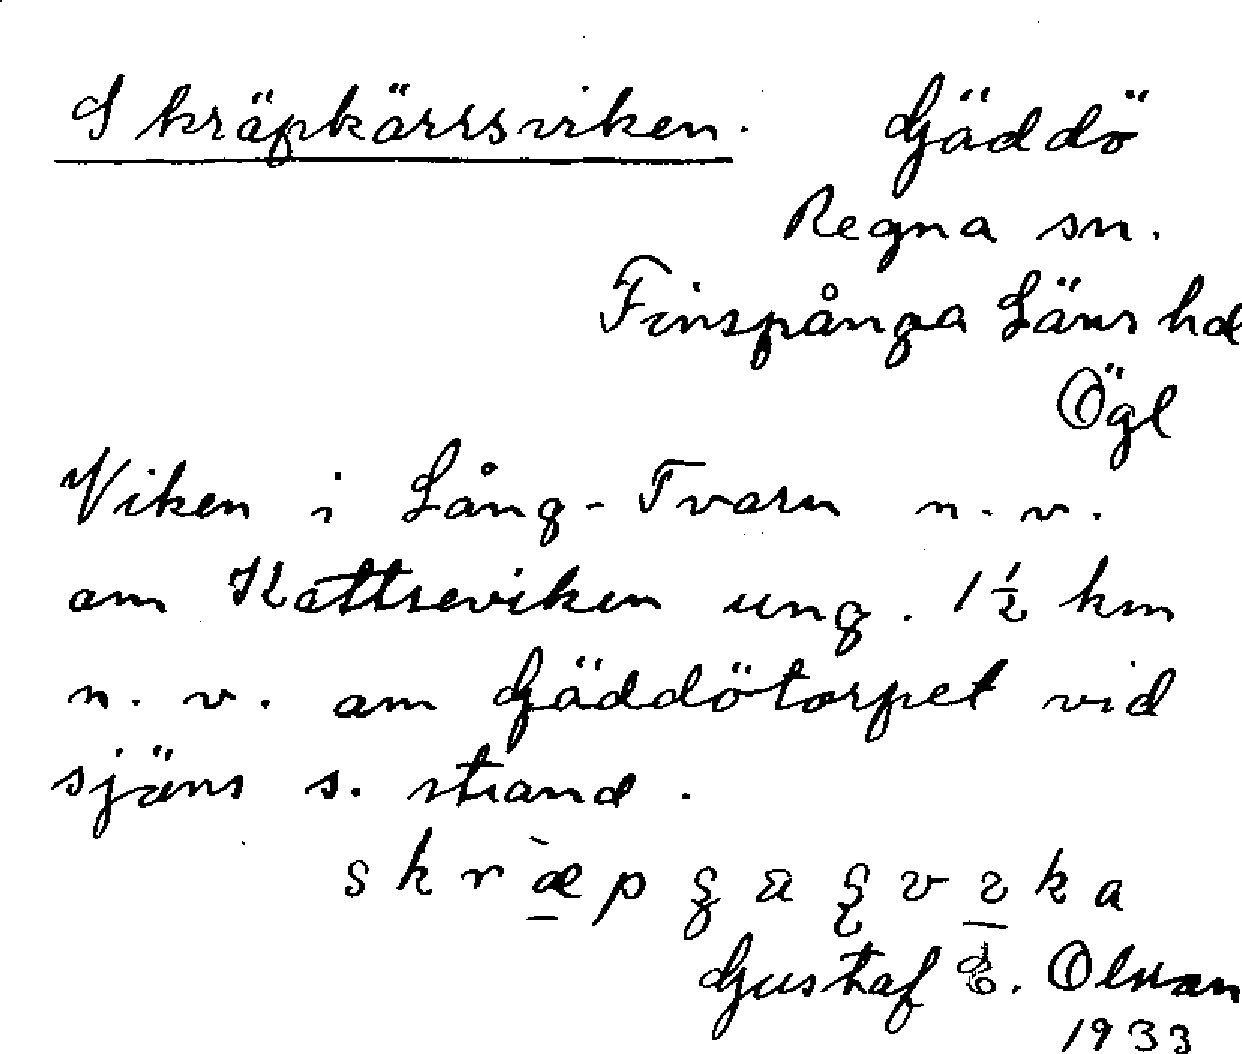 Skräpkärrsviken. Gäddö
Regna sn.
Finspånga Läns hd
Ögl
Viken i Lång-Tvarn n.v.
om Kattseviken ung. 1½ km
n.v. om Gäddötorpet vid
sjöns s. strand.
Gustaf E. Olsson
1933